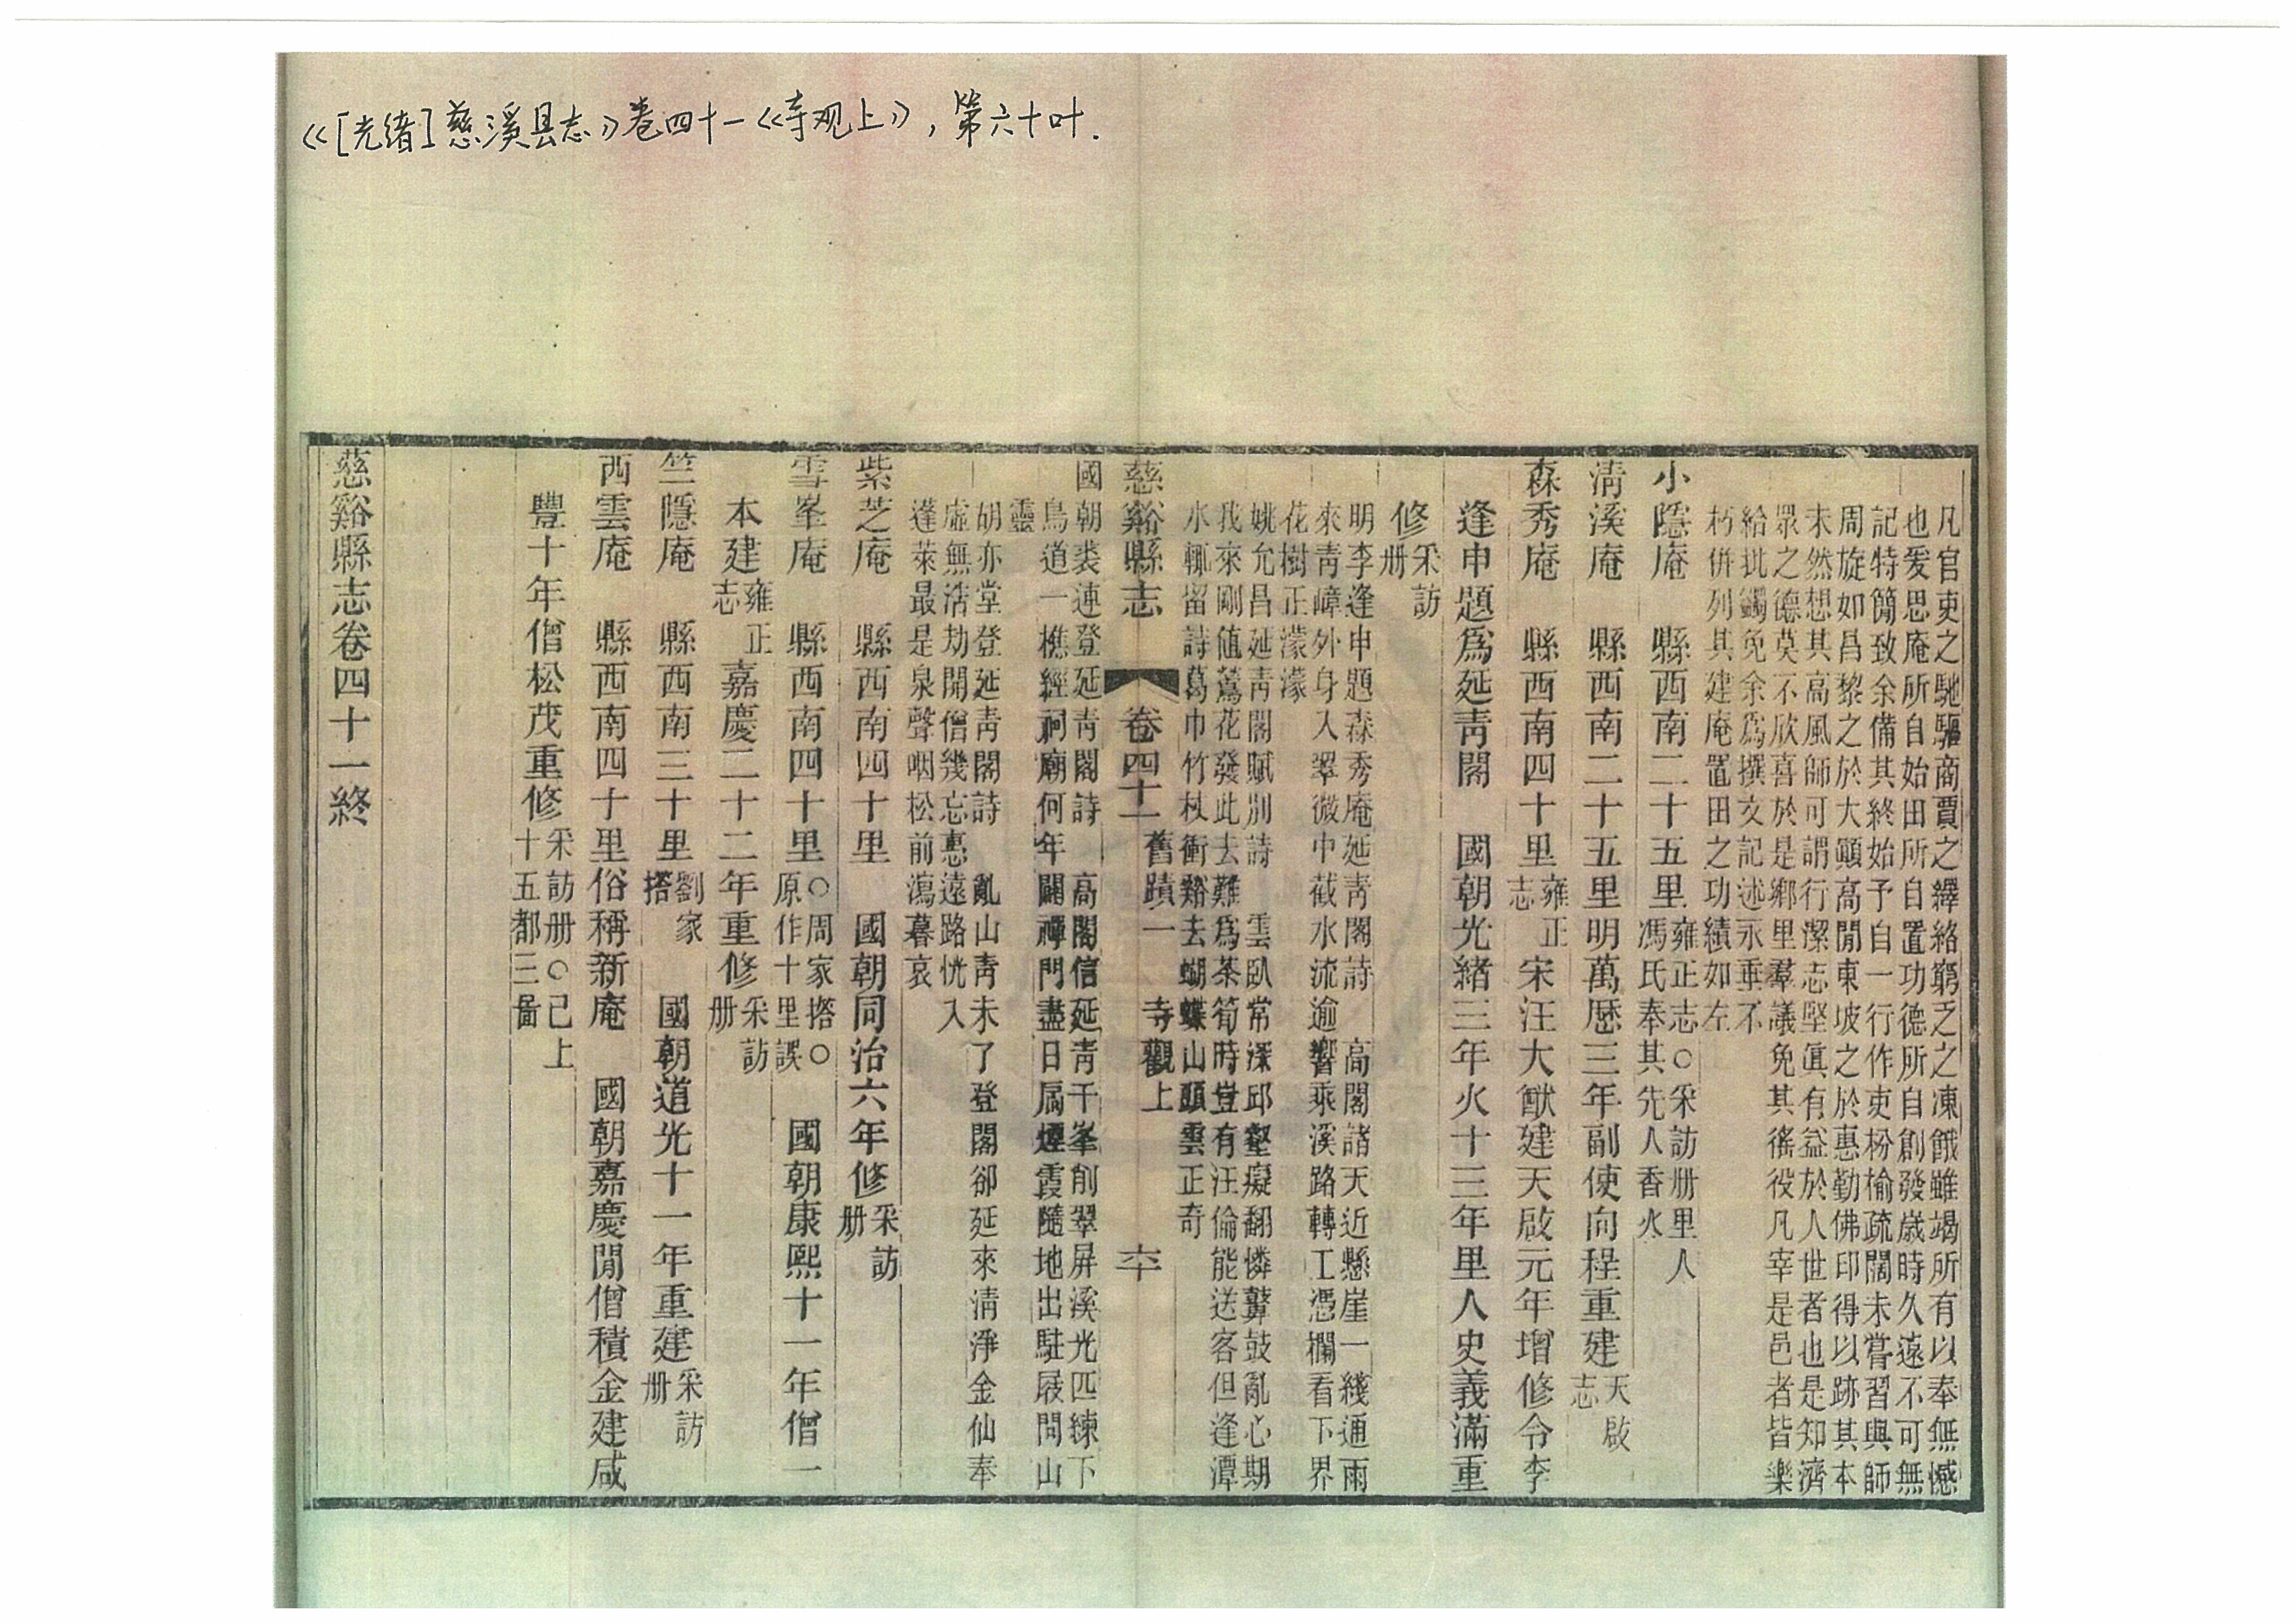 《[光绪]慈溪县志》卷四十一《寺观上》，第六十叶.
凡官吏之馳驅商賈之繹絡窮乏之凍餓雖竭所有以奉無憾
也爰思庵所自始田所自置功德所自創發歲時久遠不可無
記特簡致余備其終始予自一行作吏枌榆疏闊未嘗習與師
周旋如昌黎之於大顚高閒東坡之於惠勤佛印得以跡其本
未然想其高風師可謂行潔志堅眞有益於人世者也是知濟
眾之德莫不欣喜於是鄉里羣議免其徭役凡宰是邑者皆樂
給批蠲免余爲撰文記述永垂不
朽併列其建庵置田之功績如左
小隱庵　縣西南二十五里雍正志○采訪册里人
馮氏奉其先人香火
淸溪庵　縣西南二十五里明萬歷三年副使向程重建天啟
志
森秀庵　縣西南四十里雍正
志宋汪大猷建天啟元年增修令李
逢申題爲延靑閣　國朝光緒三年火十三年里人史義滿重
修采訪
册
明李逢申題森秀庵延靑閣詩　高閣諸天近懸崖一綫通雨
來靑嶂外身入翠微中截水流逾響乘溪路轉工憑欄看下界
花樹正濛濛
姚允昌延靑閣賦別詩　雲臥常深邱壑癡翻憐鼙鼓亂心期
我來剛値鶯花發此去難爲茶筍時豈有汪倫能送客但逢潭
水輒留詩葛巾竹杖衝谿去蝴蝶山頭雲正奇
慈谿縣志　卷四十一　舊蹟一　寺觀上　六十
國朝裘連登延靑閣詩　高閣信延靑千峯削翠屛溪光匹練下
鳥道一樵經祠廟何年闢禪門盡日扃煙霞隨地出駐屐問山
靈
胡亦堂登延靑閣詩　亂山靑未了登閣卻延來淸淨金仙奉
虛無浩劫開僧幾忘惠遠路恍入
蓬萊最是泉聲咽松前瀉暮哀
紫芝庵　縣西南四十里　國朝同治六年修采訪
册
雪峯庵　縣西南四十里○周家搭○
原作十里誤　國朝康熙十一年僧一
本建雍正
志嘉慶二十二年重修采訪
册
竺隱庵　縣西南三十里劉家
搭　國朝道光十一年重建采訪
册
西雲庵　縣西南四十里俗稱新庵　國朝嘉慶閒僧積金建咸
豐十年僧松茂重修采訪册○已上
十五都三啚
慈谿縣志卷四十一終